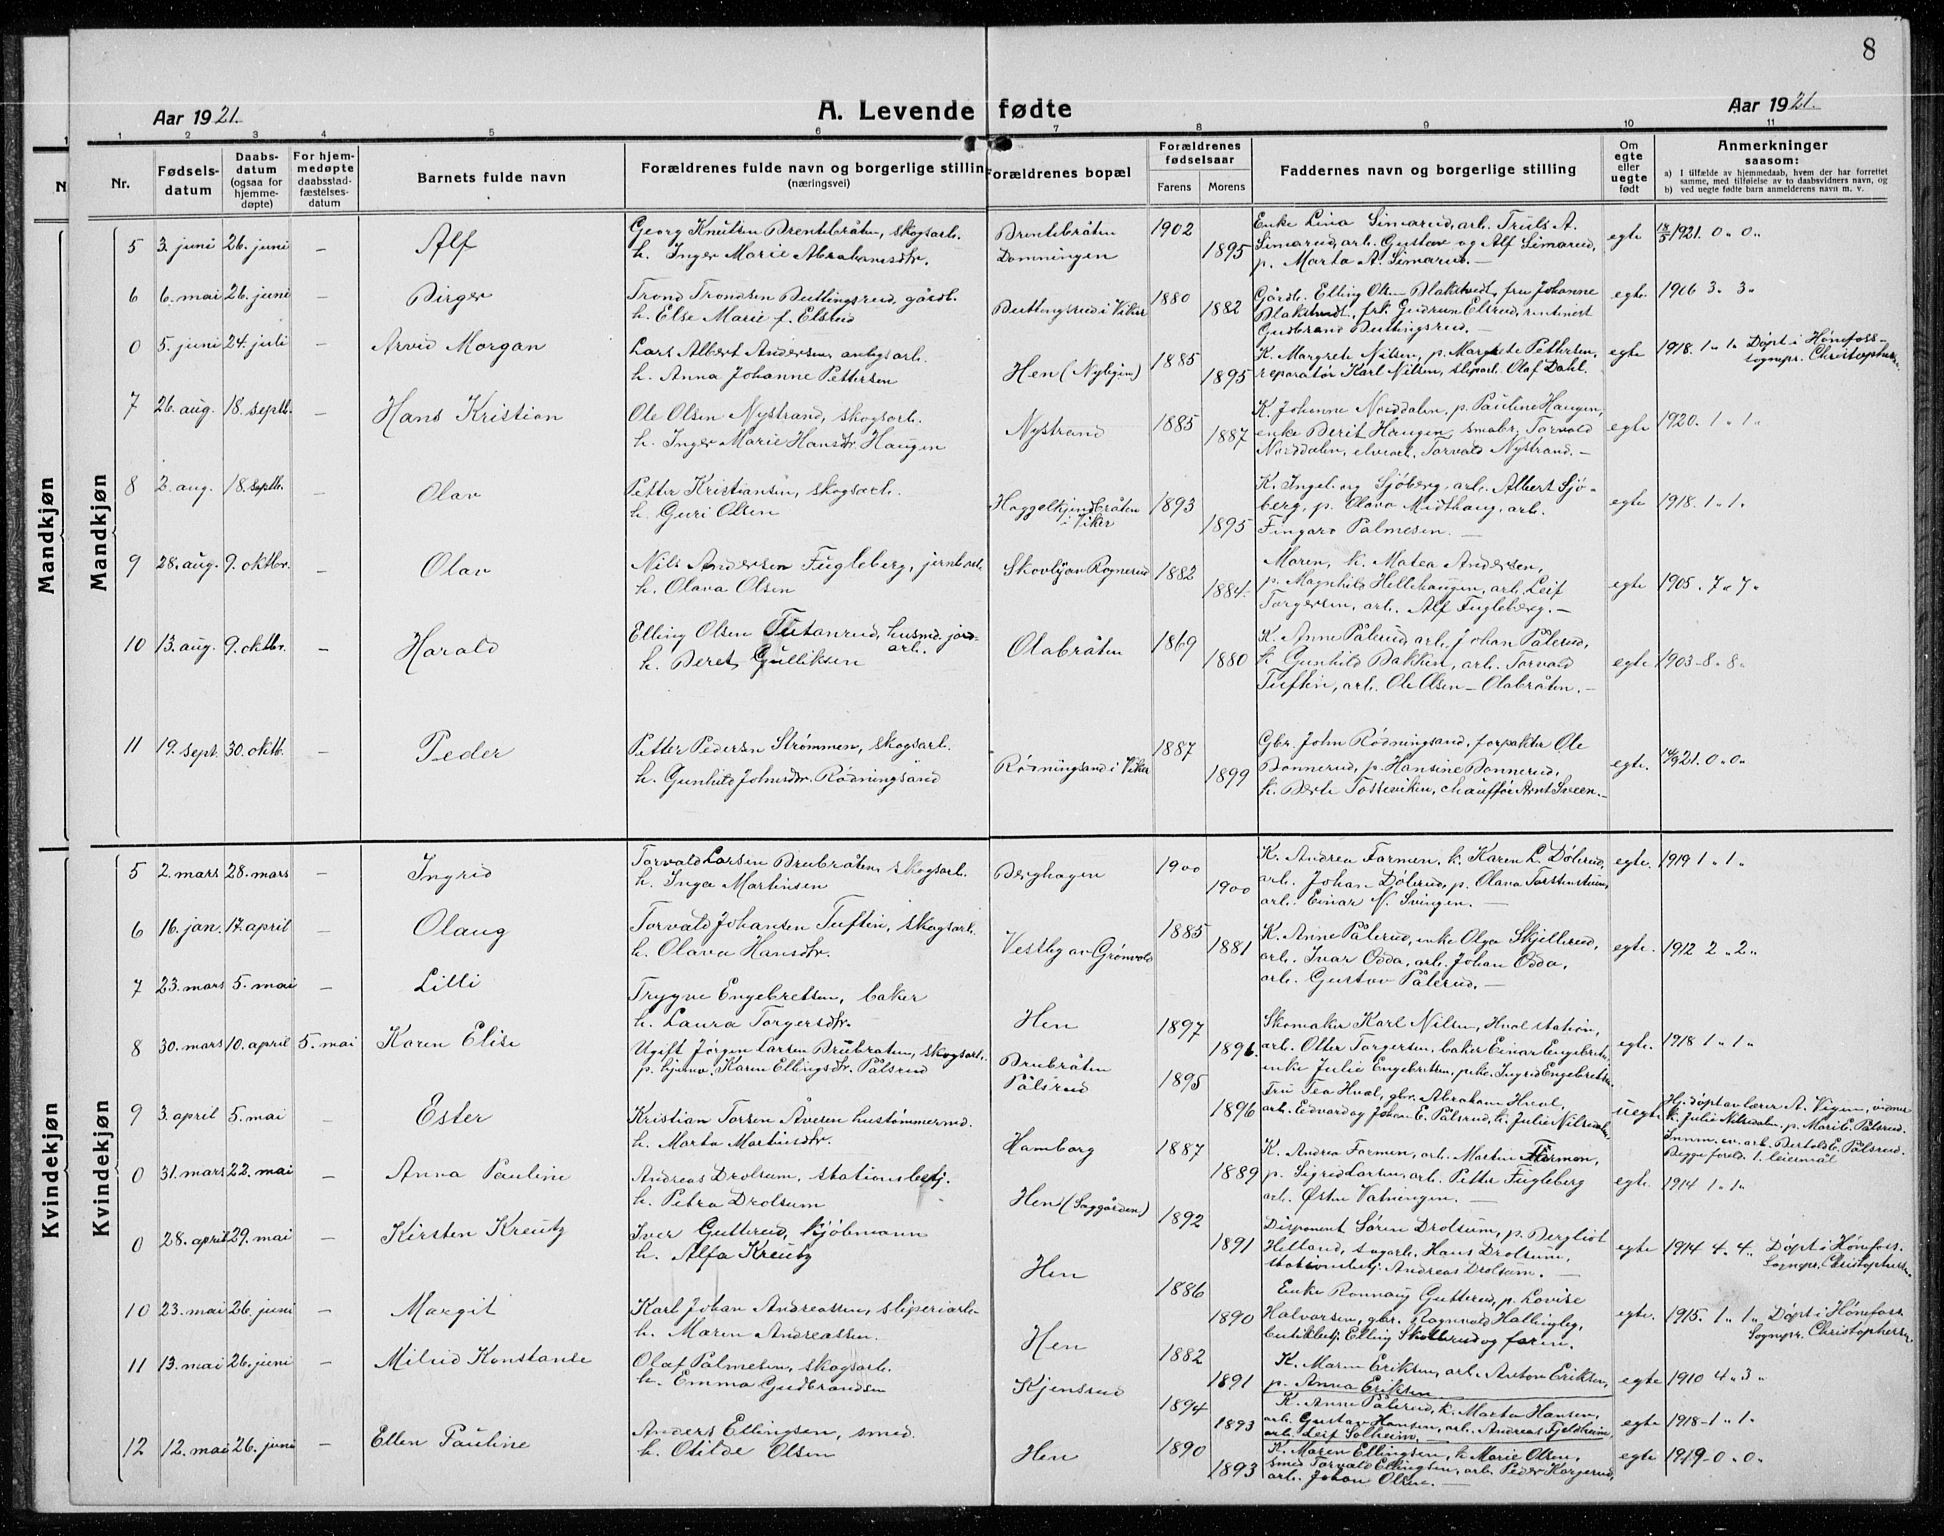 8
Aar 1921.
A. Levende fødte
Aar 1921.
1 2 3 4 5 6 7 8 9 10 11
Nr.
Fødsels-
datum
Daabs-
datum
(ogsaa for
hjemme-
døpte)
For hjem-
medøpte
daabsstad-
fæstelses-
datum
Barnets fulde navn
Forældrenes fulde navn og borgerlige stilling
(næringsvei)
Forældrenes bopæl
Forældrenes
fødselsaar
Farens Morens
Faddernes navn og borgerlige stilling
Om
egte
eller
uegte
født
Anmerkninger
saasom:
a) I tilfælde av hjemmedaab, hvem der har forrettet
samme, med tilføielse av to daabsvidners navn, og
b) ved uegte fødte barn anmelderens navn m. v.
Mandkjøn
Mandkjøn
5 3. juni 26. juni – Alf
Georg Knutsen Brentebråten, skogsarb.
h. Inger Marie Abrahamsdtr.
Brentebråten
Domningen
1902
1895
Enke Lina Simarud, arb. Truls A.
Simarud, arb. Gustav og Alf Simarud,
p. Marta A. Simarud. –
egte 1921. 0 „ 0 „
6 6. mai 26. juni – Birger
Trond Trondsen Buttingsrud, gårdb.
h. Else Marie f. Elsrud
Buttingsrud i Viker
1880
1882
Gårdb. Elling Olsen Blakstvedt, fru Johanne
Blakstvedt, frk. Gudrun Elsrud, rentenert
Gudbrand Buttingsrud. –
egte. 1906 3 „ 3 „
0 5. juni 24. juli – Arvid Morgan
Lars Albert Andersen, anlegsarb.
h. Anna Johanne Pettersen
Hen (Nylyjen)
1885
1895
K. Margrete Nilsen, p. Margrete Pettersen,
reparatør Karl Nilsen, sliparb. Olaf Dahl.
egte 1918. 1 „ 1 „ Døpt i Hønefoss –
sognpr. Christophersen.
7 26. aug. 18. septb. – Hans Kristian
Ole Olsen Nystrand, skogsarb.
h. Inger Marie Hansdtr. Haugen
Nystrand
1885
1887
K. Johanne Norddalen, p. Pauline Haugen,
enke Berit Haugen, småbr. Torvald
Norddalen, elvearb. Torvald Nystrand. –
egte 1920. 1 „ 1 „
8 2. aug. 18. septb. – Olav
Petter Kristiansen, skogsarb.
h. Guri Olsen
i Viker
1893
1895
K. Ingeborg Sjøberg, arb. Albert Sjø-
berg, p. Olava Midthaug, arb.
Fingaro Palmesen. –
egte 1918. 1 „ 1 „
9 28. aug. 9. oktbr. – Olav
Nils Andersen Fugleberg, jernb.arb.
h. Olava Olsen
Skovly av Rognerud
1882
1884
Moren, k. Matea Andersen,
p. Magnhild Hellehaugen, arb. Leif
Torgersen, arb. Alf Fugleberg. –
egte 1905. 7 „ 7 „
10 13. aug. 9. oktbr. – Harald
Elling Olsen Tutanrud, husmd. jord-
arb.
h. Beret Gulliksen
Olabråten
1869
1880
K. Anne Pålerud, arb. Johan Pålerud,
k. Gunhild Bakken, arb. Torvald
Tuftin, arb. Ole Olsen – Olabråten. –
egte 1903 – 8 „ 8 „
11 19. sept. 30. oktb. – Peder
Petter Pedersen Strømmen, skogsarb.
h. Gunhild Johnsdtr. Rødningsand
Rødningsand i Viker
1887
1899
Gbr. John Rødningsand, forpakter Ole
Bonnerud, p. Hansine Bonnerud,
k. Berte Tosseviken, chauffør Arnt Sveen. –
egte. 14/9 21. 0 „ 0 „
Kvindekjøn
Kvindekjøn
5 2. mars 28. mars – Ingrid
Torvald Larsen Brubråten, skogsarb.
h. Inga Martinsen
Berghagen
1900
1900
K. Andrea Formen, k. Karen L. Dølerud,
arb. Johan Dølerud, p. Olava Torstenstuen,
arb. Einar N. Svingen. –
egte. 1919 1 „ 1 „
6 16. jan. 17. april – Olaug
Torvald Johansen Tuftin, skogsarb.
h. Olava Hansdtr.
Vestby av Grønvold
1885
1881
K. Anne Pålerud, enke Olga Skjellerud,
arb. Ivar Odda, arb. Johan Odda,
arb. Gustav Pålerud. –
egte. 1912 2 „ 2 „
7 23. mars 5. mai – Lilli
Trygve Engebretsen, baker
h. Laura Torgersdtr.
Hen
1897
1896.
Skomaker Karl Nilsen, Hval station,
arb. Otter Torgersen, baker Einar Engebretsen,
enke Julie Engebretsen, pike Ingrid Engebretsen
egte. 1918 1 „ 1 „
8 30. mars 10. april 5. mai Karen Elise
Ugift Jørgen Larsen Brubråten, skogsarb.
p. hjemv. Karen Ellingsdtr. Pålsrud
Brubråten
Pålsrud
1895
1896
Fru Tea Hval, gbr. Abraham Hval,
arb. Edvard og Johan E. Pålsrud, k. Julie Nilsedalen
uegte. Hj. døpt av lærer A. Vigen, vidner
k. Julie Nilsedalen, p. Mari E. Pålsrud.
Innm. ev. arb. Bertold E. Pålsrud.
Begge foreld. 1. leiermål
9 3. april 5. mai – Ester
Kristian Torsen Åveren hustømmermd.
h. Marta Martinsdtr.
Hamborg
1887
1889
K. Andrea Formen, arb. Martin Formen,
p. Sigrid Larsen, arb. Petter Fugleberg
arb. Østen Vatningen. –
egte. 1914 1 „ 1 „
0 31. mars 22. mai – Anna Pauline
Andreas Drolsum, stationsbetj.
h. Petra Drolsum
Hen (Saggården)
1892
1891
Disponent Søren Drolsum, p. Bergliot
Helland, sagarb. Hans Drolsum,
stationsbetj. Andreas Drolsum. –
egte 1914 4 „ 4 „ Døpt i Hønefoss.
Sognpr. Christophersen.
0 28. april 29. mai – Kirsten Kreutz
Iver Gutterud, kjøbmann
h. Alfa Kreutz
Hen
1886
1890
Enke Ronnaug Gutterud, p. Lovise
Halvorsen, gbr. Ragnvald Hallingby,
butikbetj. Elling Skollerud og faren.
egte. 1915. 1 „ 1 „ Døpt i Hønefoss
Sognpr. Christophersen
10 23. mai 26. juni – Margit
Karl Johan Andreassen, sliperiarb.
h. Maren Andreassen.
Hen
1882
1891
K. Maren Eriksen, arb. Anton Eriksen,
p. Anna Eriksen
egte 1910 4 „ 3 „
11 13. mai 26. juni – Milrid Konstanse
Olaf Palmesen, skogsarb.
h. Emma Gudbrandsen
Kjensrud
1894
1893
K. Anne Pålerud, k. Marta Hansen,
arb. Gustav Hansen, arb. Andreas Fjeldheim,
arb. Leif Solheim.
egte 1918 – 1 „ 1 „
12 12. mai 26. juni – Ellen Pauline
Anders Ellingsen, smed
h. Otilde Olsen
Hen
1890
1893
K. Maren Ellingsen, k. Marie Olsen,
smed Torvald Ellingsen, arb. Peder Korperud,
arb. Johan Olsen. –
egte 1919 – 0 „ 0 „